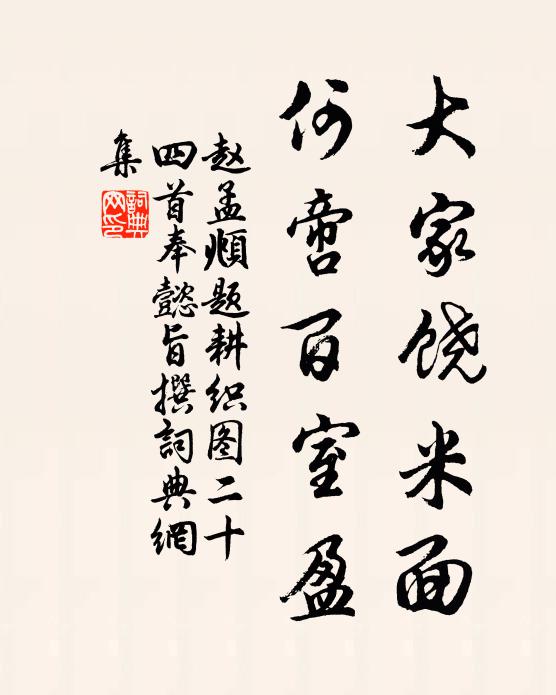 大家饶米面
何啻百室盈
赵孟頫题耕织图二十
四首奉懿旨撰詞典網
集
詞典
网印